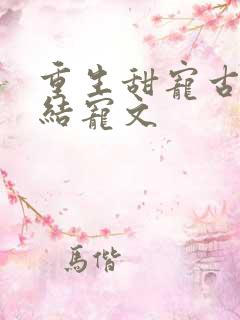 重生甜寵古
結寵文
馬偕